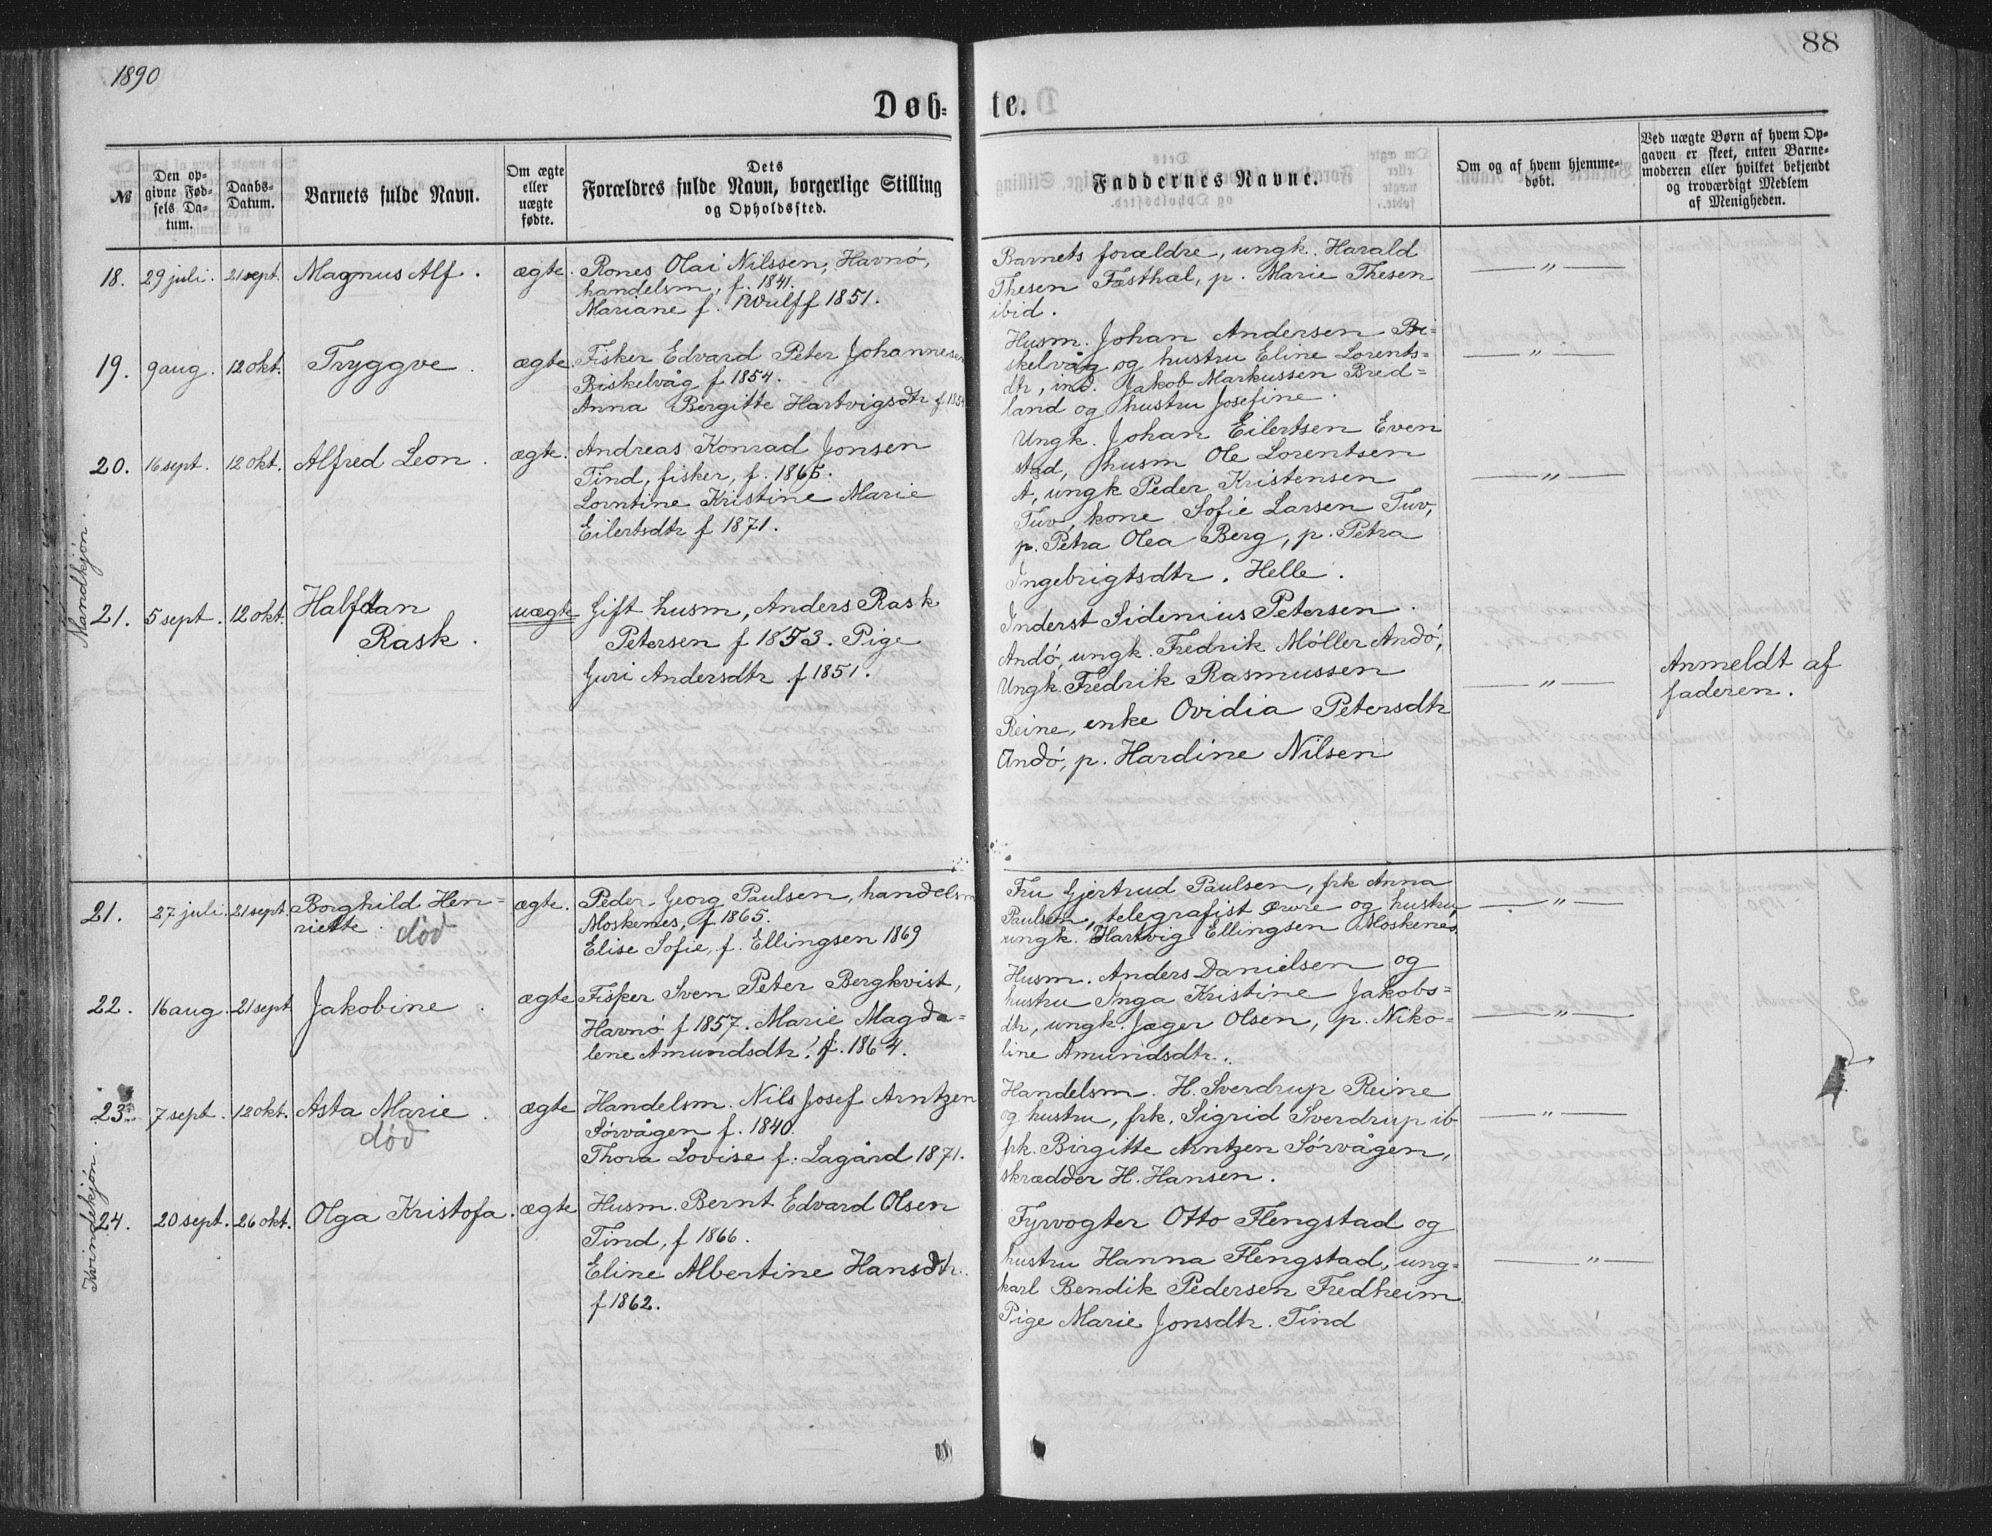 1890
88
Døb-
te.
№
Den op-
givne Fød-
sels Da-
tum.
Daabs-
Datum.
Barnets fulde Navn.
Om ægte
eller
uægte
fødte.
Dets
Forældres fulde Navn, borgerlige Stilling
og Opholdssted.
Faddernes Navne.
Om og af hvem hjemme-
døbt.
Ved uægte Børn af hvem Op-
gaven er skeet, enten Barne-
moderen eller hvilket bekjendt
og troværdigt Medlem
af Menigheden.
Mandkjøn.
18. 29 juli. 21 sept. Magnus Alf. ægte.
Rones Olai Nilssen, Havnø,
handelsm, f. 1841.
Mariane f. Wulff 1851.
Barnets forældre, ungk. Harald
Thesen Fasthal, p. Marie Thesen
ibid.
—„—
19. 9 aug. 12 okt. Tryggve. ægte.
Fisker Edvard Peter Johannesen
Biskelvåg f 1854.
Anna Birgitte Hartvigsdtr f 1854
Husm. Johan Andersen Bi-
skelvåg og hustru Eline Lorents-
dtr, ind. Jakob Markussen Bred-
land og hustru Josefine.
—„—
20. 16 sept. 12 okt. Alfred Leon. ægte.
Andreas Konrad Jonsen
Tind, fisker, f. 1865.
Lorntine Kristine Marie
Eilertsdtr f 1871.
Ungk. Johan Eilertsen Even
stad, husm Ole Lorentsen
Å, ungk Peder Kristensen
Tuv, kone Sofie Larsen Tuv,
p. Petra Olea Berg, p. Petra
Ingebrigtsdtr. Helle.
—„—
21. 5 sept. 12 okt. Halfdan
Rask.
uægte
Gift husm, Anders Rask
Petersen f 1853. Pige
Guri Andersdtr f 1851.
Inderst Sidenius Petersen.
Andø, ungk. Fredrik Møller Andø,
Ungk. Fredrik Rasmussen
Reine, enke Ovidia Petersdtr
Andø, p. Hardine Nilsen
—„—
Anmeldt af
faderen.
Kvindekjøn.
21. 27 juli. 21 sept Borghild Hen-
riette.
død
ægte.
Peder Georg Paulsen, handelsm
Moskenes, f 1865.
Elise Sofie, f. Ellingsen 1869
Fru Gjertrud Paulsen, frk Anna
Paulsen, telegrafist Orvre og hustru,
ungk. Hartvig Ellingsen Moskenes.
—„—
22. 16 aug. 21 sept Jakobine. ægte
Fisker Sven Peter Bergkvist,
Havnø f 1857. Marie Magda-
lene Amundsdtr. f. 1864.
Husm. Anders Danielsen og
hustru Inga Kristine Jakobs-
dtr, ungk. Jæger Olsen, p. Niko-
line Amundsdtr.
—„—
23. 7 sept. 12 okt. Asta Marie.
død
ægte
Handelsm. Nils Josef Arntzen
Sørvågen f. 1840.
Thora Lovise f. Lagård 1871.
Handelsm. H. Sverdrup Reine
og hustru, frk. Sigrid Sverdrup ib
frk. Birgitte Arntzen Sørvågen,
skrædder H. Hansen.
—„—
24. 20 sept. 26 okt. Olga Kristofa. ægte
Husm. Bernt Edvard Olsen
Tind, f 1866.
Eline Albertine Hansdtr.
f 1862.
Fyrvogter Otto Flengstad og
hustru Hanna Flengstad, ung-
karl Bendik Pedersen Fredheim.
Pige Marie Jonsdtr. Tind
—„—